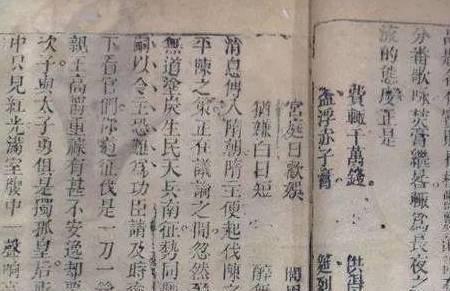 分番歌咏焚膏繼晷輙為長夜之
波的態度正是
費輙千萬錢 供得
盃浮赤子膏 筵列
宮庭日歡娛 閭閻
猶嫌白日短 醇
消息傳入隋朝隋主便起伐陳之
平陳之策正在議論之間忽然
無道塗炭生民天兵南征勢同
嗣以令主恐難為功臣請及時
下看官們你道征伐是一刀一
親王高爵重祿有甚不安逸却要
次子與太子勇俱是獨孤皇后
中只見紅光滿室腹中一聲響